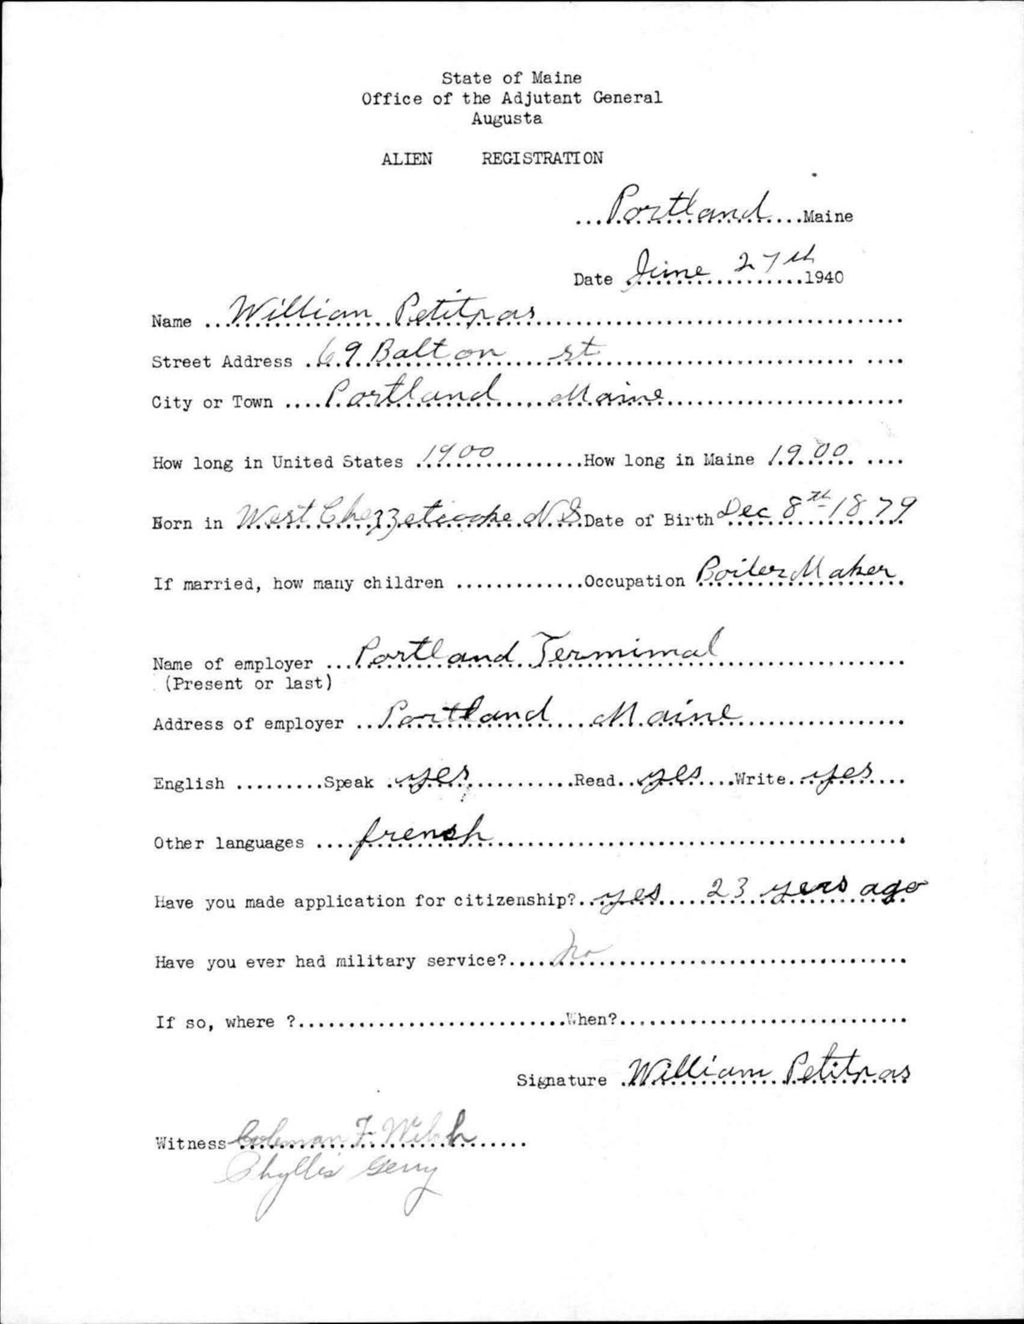 State of Maine
Office of the Adjutant General
Augusta
ALIEN REGISTRATION
...Portland....Maine
Date June 27th 1940
Name William Petitpas
Street Address 69 Balton st.
City or Town Portland Maine
How long in United States 1900 How long in Maine 1900
Born in West Chezzetcooke N S. Date of Birth Dec 8th 1879
If married, how many children .............Occupation Boiler Maker
Name of employer Portland Termimal
(Present or last)
Address of employer Portland Maine
English .........Speak yes Read yes Write yes
Other languages frensh
Have you made application for citizenship? yes 23 yers ago
Have you ever had military service? no
If so, where ? When?
Signature William Petitpas
Witness Coleman F.
Phyllis Gerry